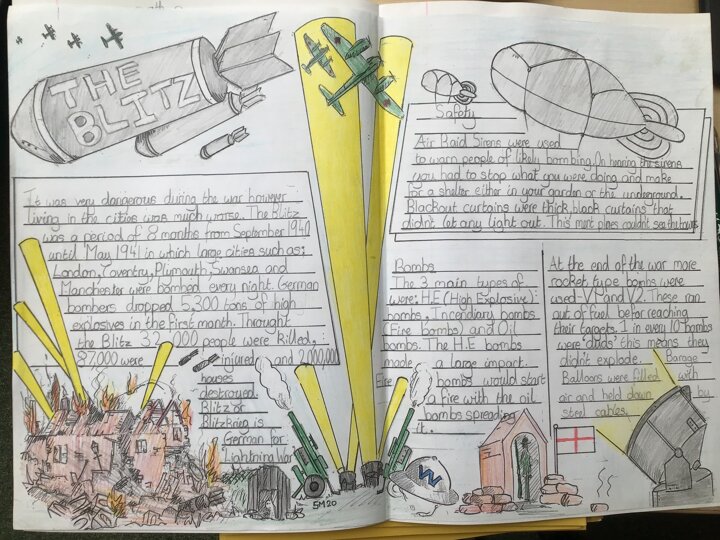 THE
BLITZ
It was very dangerous during the war however
living in the cities was much worse. The Blitz
was a period of 8 months from September 1940
until May 1941 in which large cities such as:
London, Coventry, Plymouth, Swansea and
Manchester were bombed every night. German
bombers dropped 5,300 tons of high
explosives in the first month. Throught
the Blitz 32,000 people were killed,
87,000 were injured and 2,000,000
houses
destroyed.
Blitz or
Blitzkrieg is
German for
Lightning War
5M20
Safety
Air Raid Sirens were used
to warn people of likely bombing. On hearing the sirens
you had to stop what you were doing and make
for a shelter either in your garden or the underground.
Blackout curtains were thick black curtains that
didn't let any light out. This ment planes couldn't see the towns
Bombs
The 3 main types of
were: H.E (High Explosive)
bombs, Incendiary bombs
(Fire Bombs) and Oil
bombs. The H.E bombs
made a large impact.
Fire bombs would start
a fire with the oil
bombs spreading
it.
At the end of the war more
rocket type bombs were
used V1 and V2. These ran
out of fuel before reaching
their targets. 1 in every 10 bombs
were 'duds' this means they
didn't explode. Barage
Balloons were filled with
air and held down by
steel cables.
W